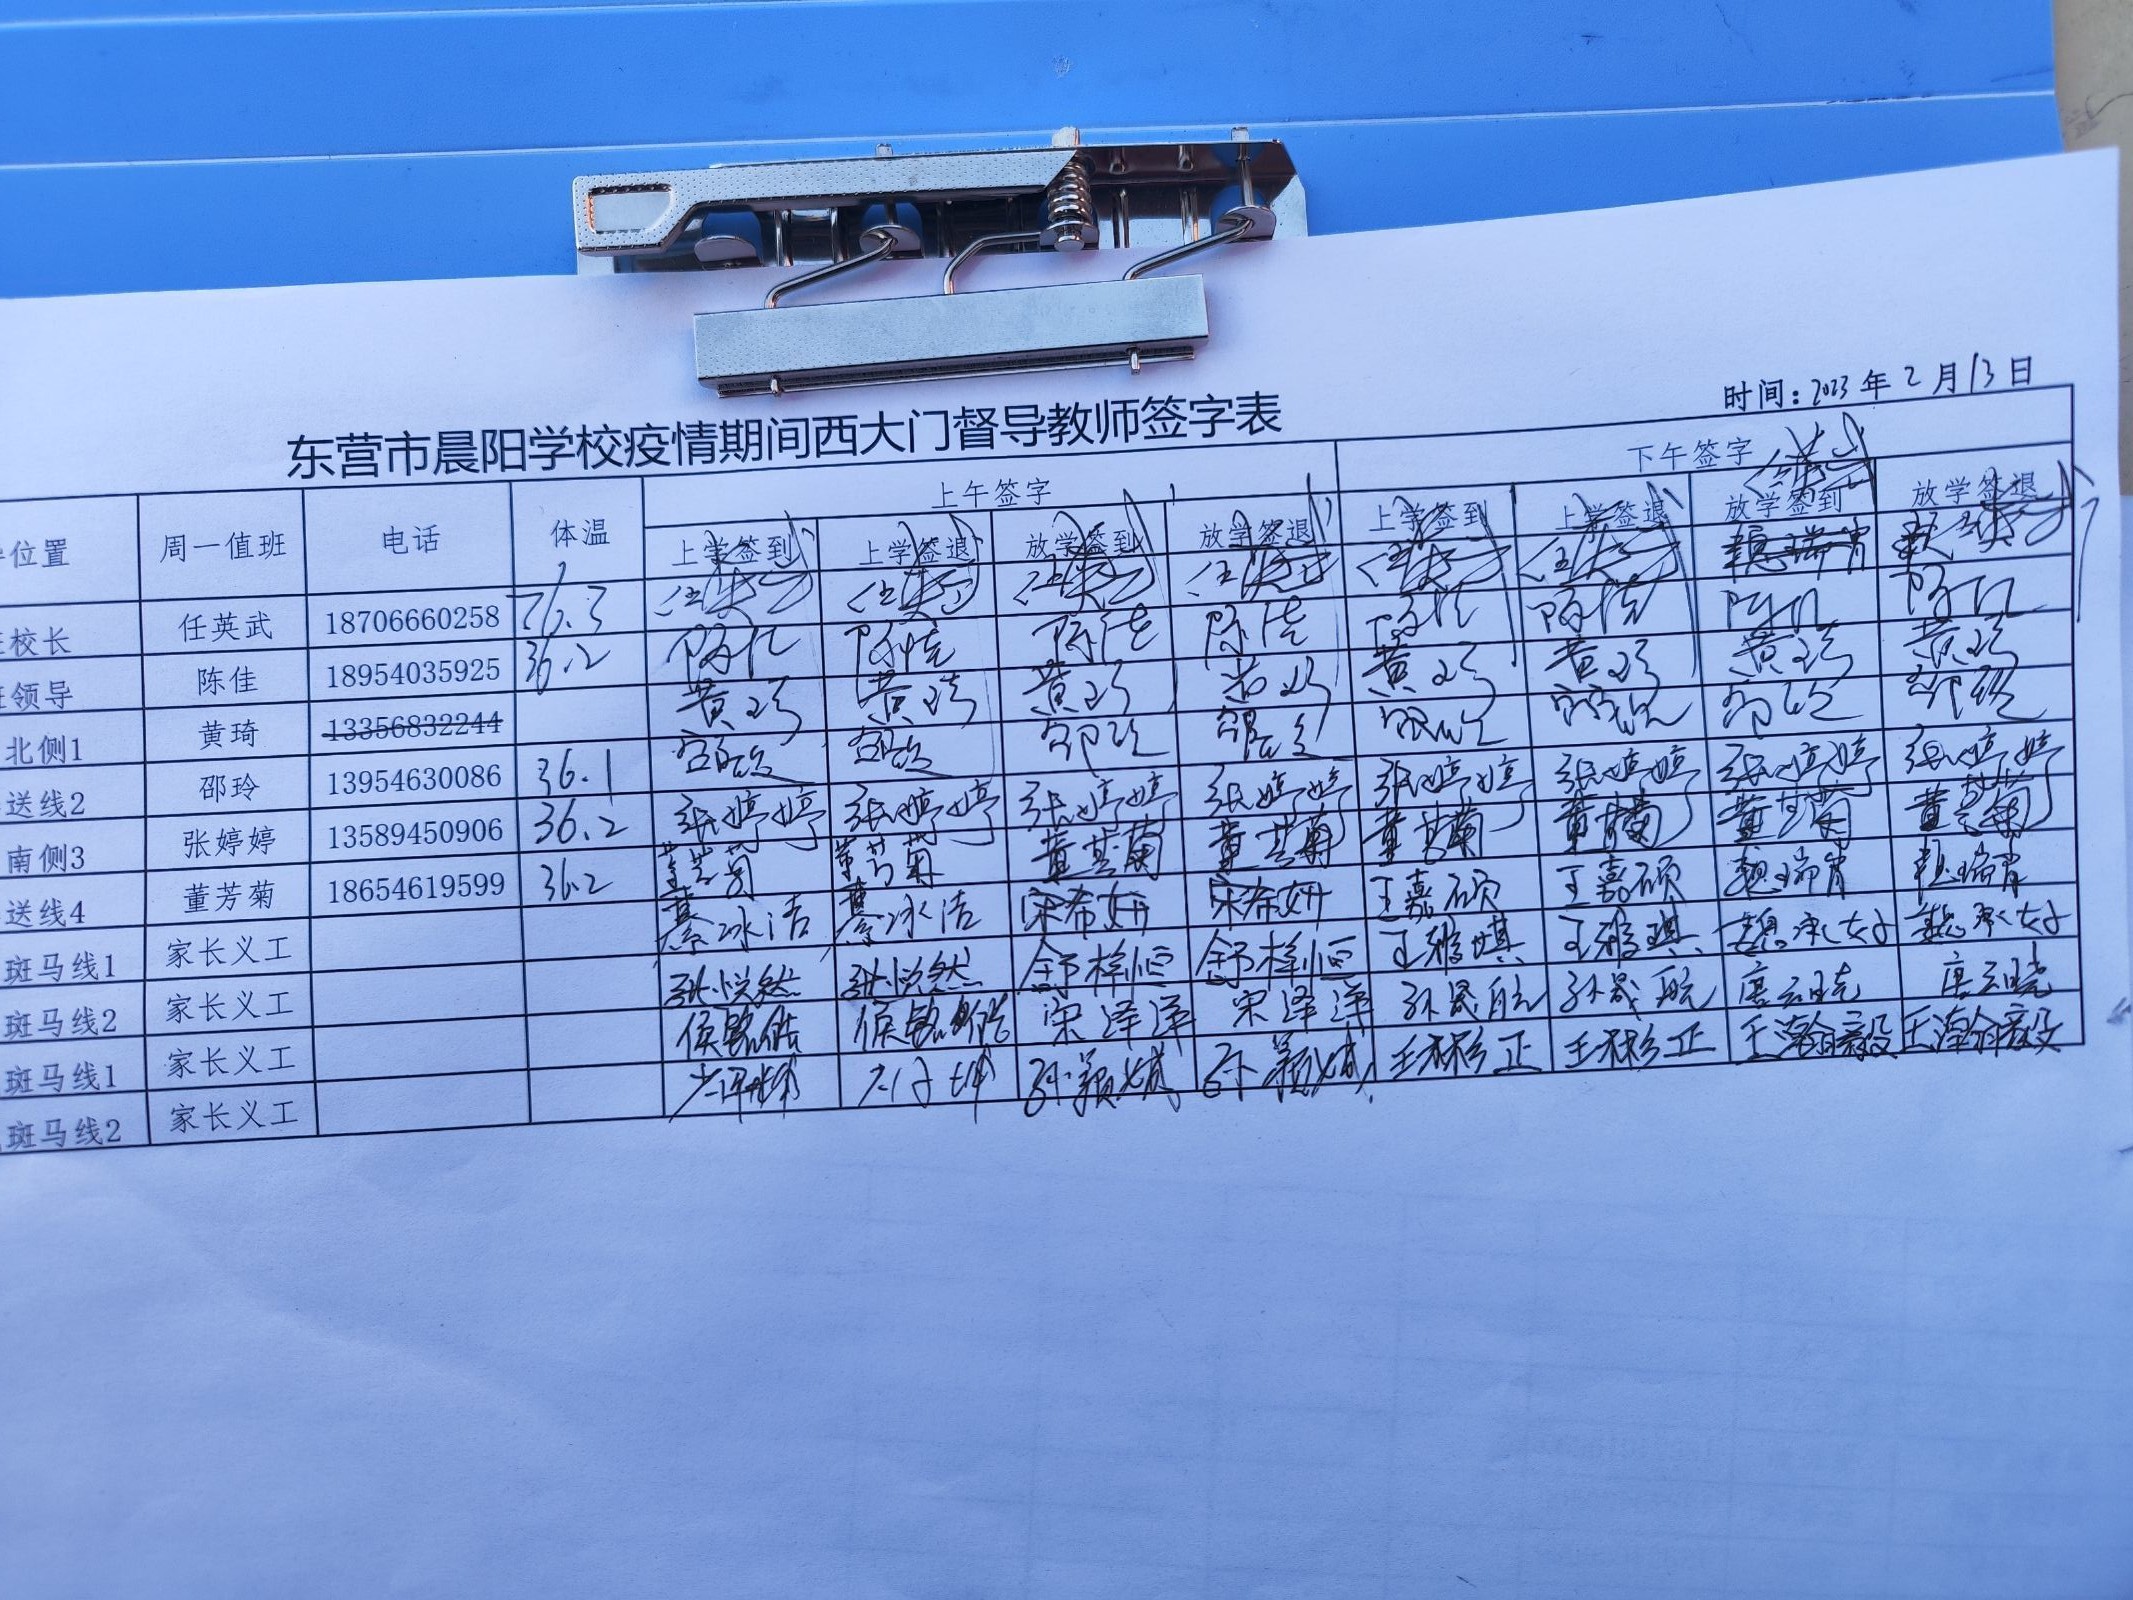 时间:2023年2月13日
东营市晨阳学校疫情期间西大门督导教师签字表
位置 周一值班 电话 体温 上午签字 下午签字
上学签到 上学签退 放学签到 放学签退 上学签到 上学签退 放学签到 放学签退
校长 任英武 18706660258 任英武 任英武 任英武 任英武 任英武 任英武
领导 陈佳 18954035925 36.2 陈佳 陈佳 陈佳 陈佳 陈佳 陈佳 陈佳 陈佳
北侧1 黄琦 13356832244 黄琦 黄琦 黄琦 黄琦 黄琦 黄琦 黄琦 黄琦
送线2 邵玲 13954630086 36.1 邵玲 邵玲 邵玲 邵玲 邵玲 邵玲 邵玲 邵玲
南侧3 张婷婷 13589450906 36.2 张婷婷 张婷婷 张婷婷 张婷婷 张婷婷 张婷婷 张婷婷 张婷婷
送线4 董芳菊 18654619599 36.2 董芳菊 董芳菊 董芳菊 董芳菊 董芳菊 董芳菊 董芳菊 董芳菊
斑马线1 家长义工 綦冰洁 綦冰洁 宋希妍 宋希妍 王嘉硕 王嘉硕
斑马线2 家长义工 张悦然 张悦然 舒梓恒 舒梓恒 王雅琪 王雅琪
斑马线1 家长义工 侯铭皓 侯铭皓 宋泽洋 宋泽洋 孙晟航 孙晟航 唐云晓 唐云晓
斑马线2 家长义工 孙颖斌 孙颖斌 王彬正 王彬正 王瀚毅 王瀚毅